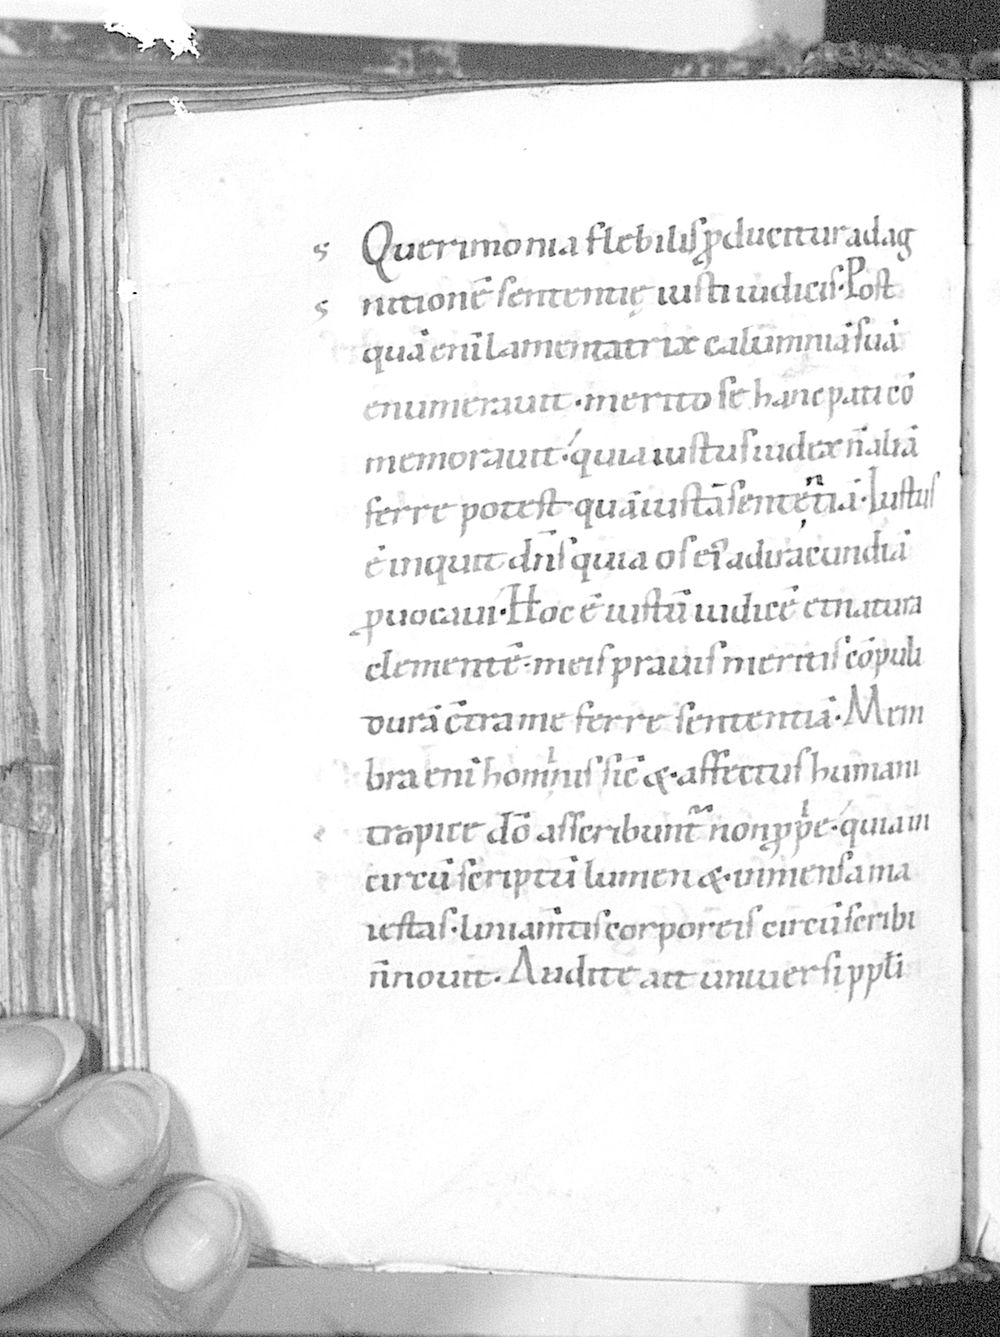 s Querimonia flebilis ꝓducitur ad ag
s nitionē sententię iusti iudicis. Post
quā enī lamentatrix calūmniā suā
enumerauit. merito se hanc pati cō
memorauit. quia iustus iudex n̄ aliā
ferre potest quā iustā sententiā. Iustus
ē inquit dn̄s quia os ei' ad iracundiā
ꝓuocaui. Hoc ē iustū iudicē et natura
clementē. meis prauis meritis cōpuli
durā cōtra me ferre sententiā. Mem
bra enī hominis sic̄ &. affectus humani
 dō asscribunt̃ non ꝓp̱e. quia in
circū scriptū lumen &. inmensa ma
iestas. liniam̄tis corporeis circū scribi
n̄ nouit. Audite ait uniuersi ppl̄i